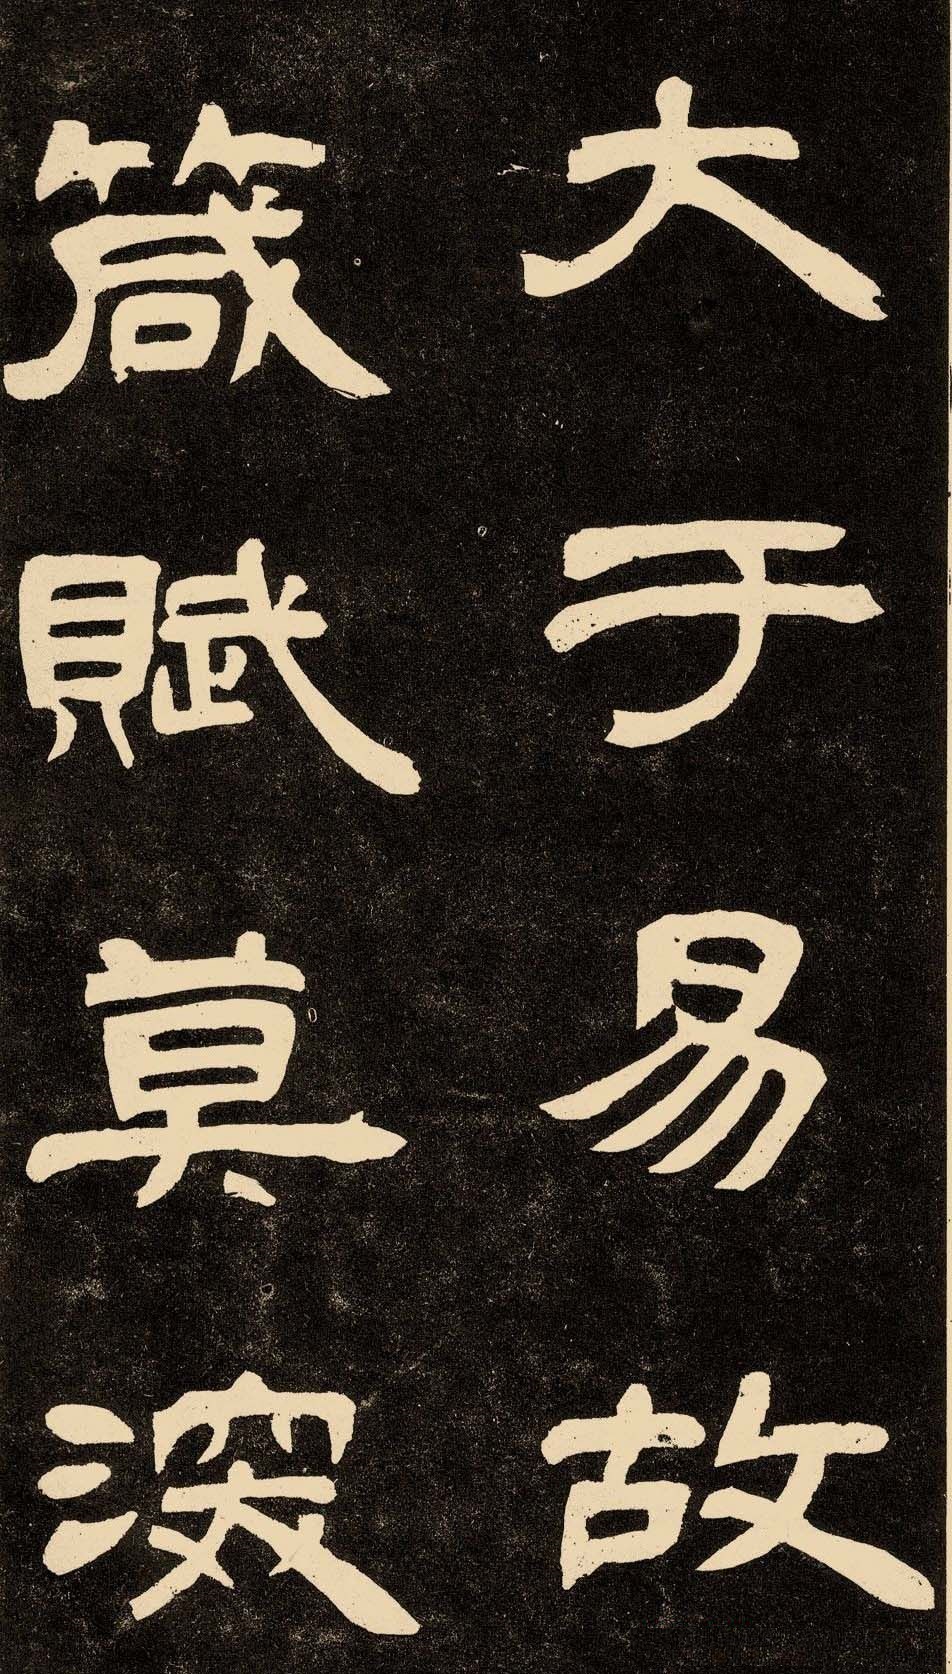 大于易故
箴賦莫深